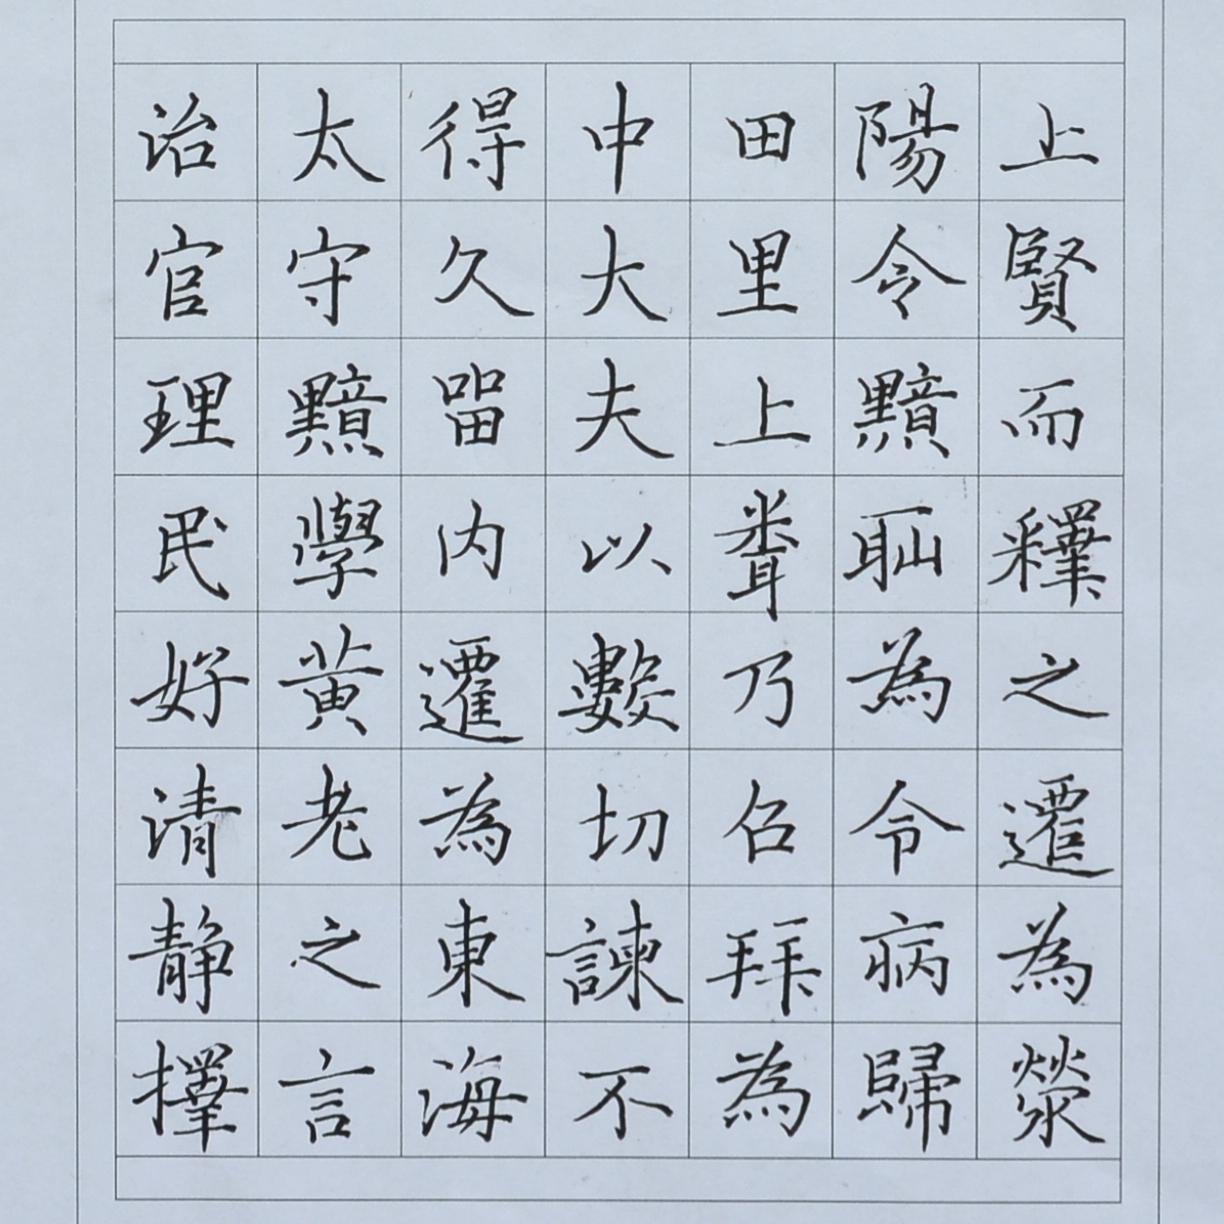 上賢而釋之遷為滎
陽令黯耻為令病歸
田里上聞乃召拜為
中大夫以數切諫不
得久留內遷為東海
太守黯學黃老之言
治官理民好清靜擇